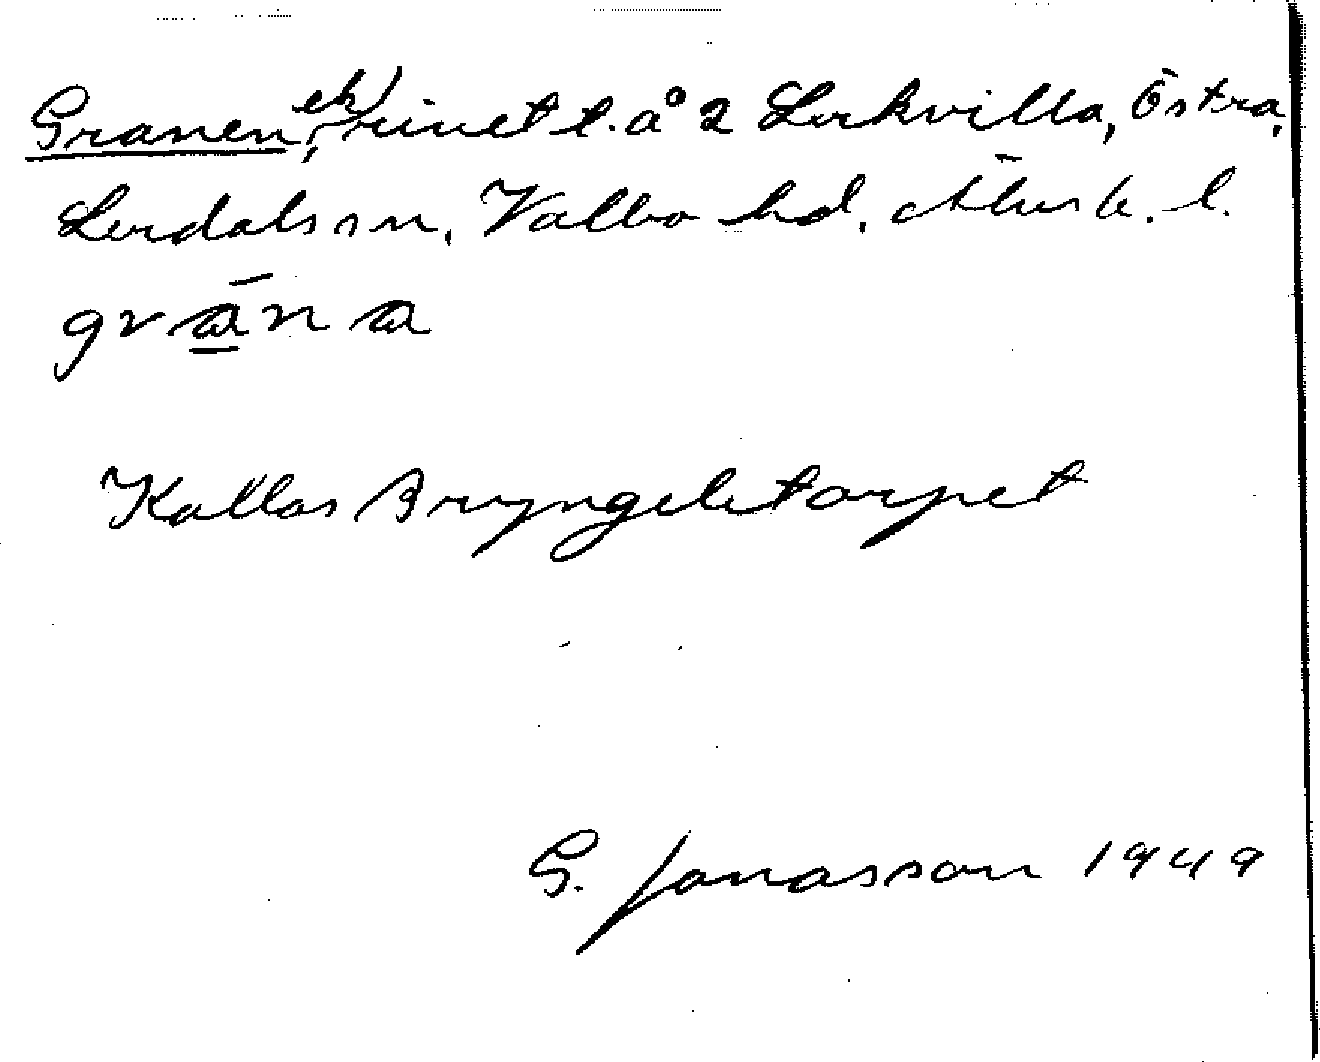 Granen, eh) rivet t. å 2 Lerkvilla, Östra,
Lerdals sn, Valbo hd, Älvsb. l.
grāna
Kallas Bryngelstorpet
G. Jonasson 1949